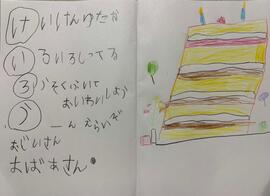 けいけんゆたか
いろいろしってる
ろうそくふいて
おいわいしよう
う〜んえらいぞ
おじいさん
おばあさん